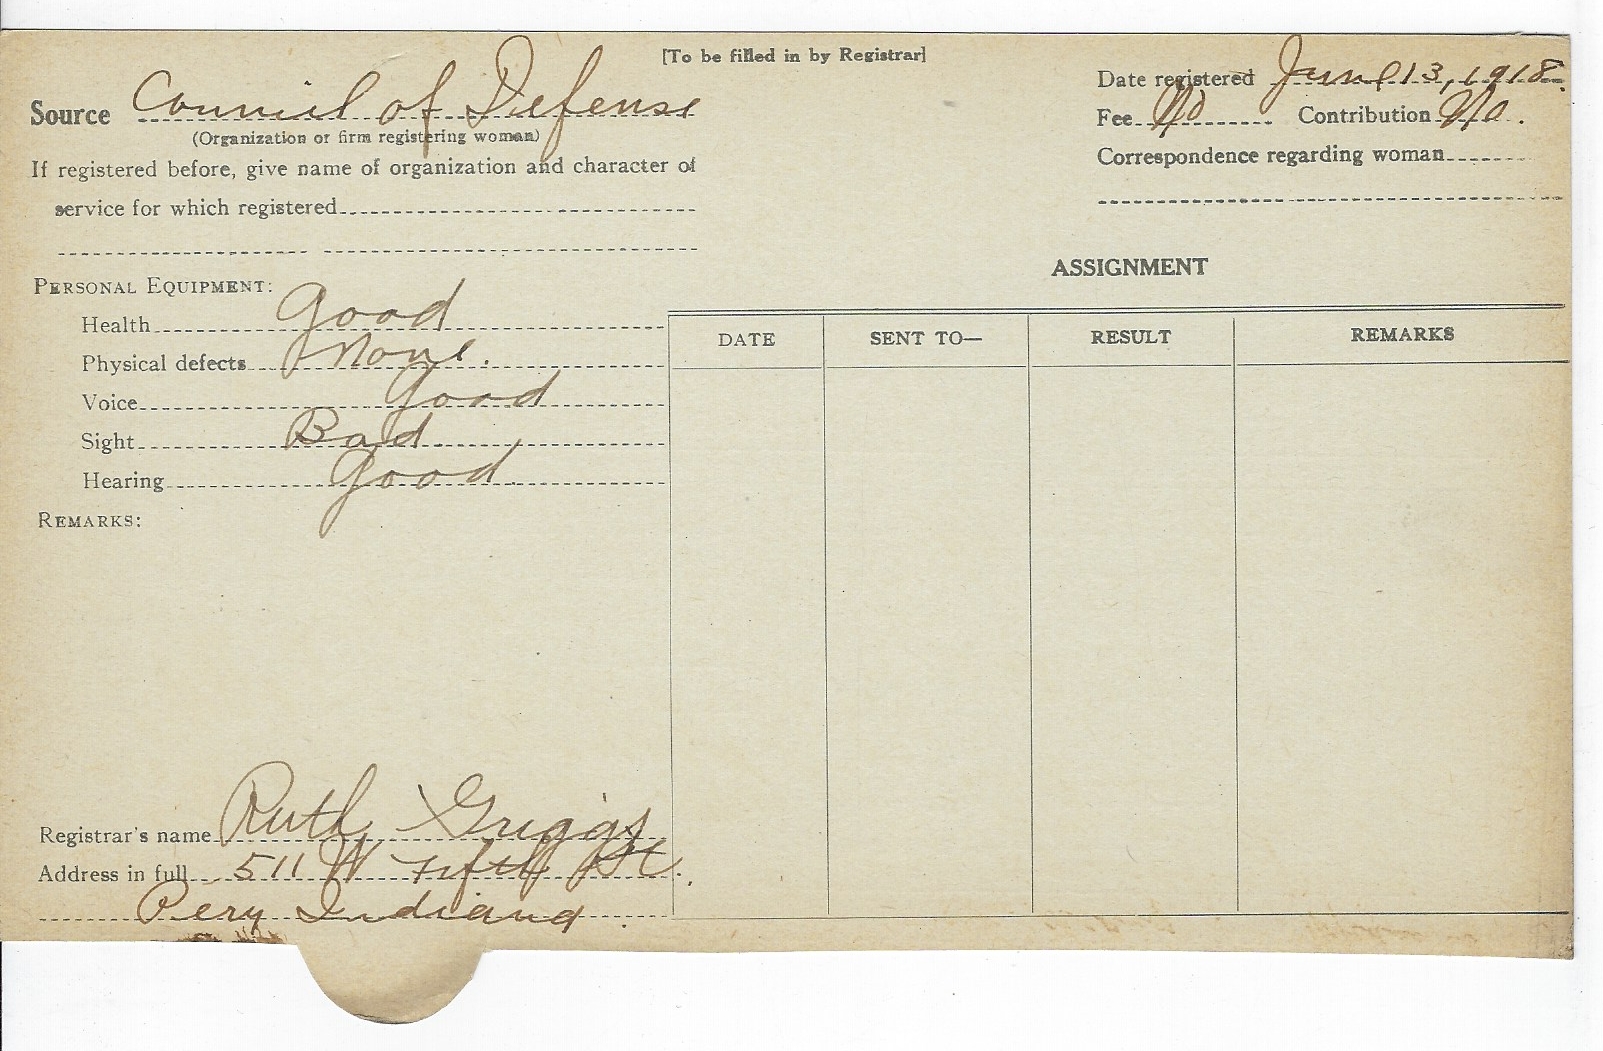 [To be filled in by Registrar]
Source Council of Defense
(Organization or firm registering woman)
If registered before, give name of organization and character of
service for which registered
Date registered June 13, 1918.
Fee No Contribution No.
Correspondence regarding woman
PERSONAL EQUIPMENT:
Health Good
Physical defects None.
Voice Good
Sight Bad
Hearing Good.
REMARKS:
ASSIGNMENT
DATE SENT TO— RESULT REMARKS
Registrar's name Ruth Griggs
Address in full 511 W Fifth St.
Peru Indiana.